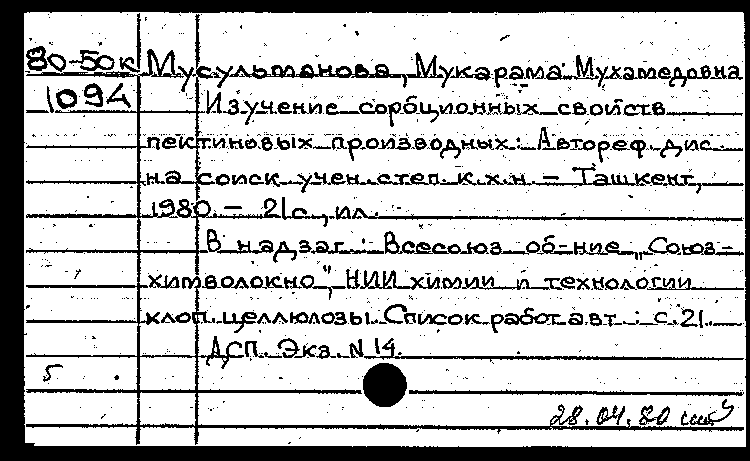 80-50к Мусульманова, Мукарама Мухамедовна
1094 Изучение сорбционных свойств
пектиновых производных: Автореф. дис.
на соиск. учен. степ. к.х.н. - Ташкент,
1980. - 21с., ил.
В надзаг.: Всесоюз. об-ние „Союз-
химволокно", НИИ химии и технологии
хлоп. целлюлозы. Список работ авт.: с. 21.
ДСП. Экз. N 14.
5
28.04.80